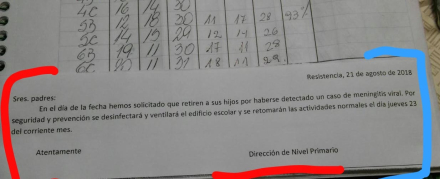 4C 16 14 30
5B 12 18 30 11 17 28 93%
5C 14 15 29 12 14 26
6B 19 11 30 17 11 28
6C 20 11 31 18 11 29
Resistencia, 21 de agosto de 2018
Sres. padres:
En el día de la fecha hemos solicitado que retiren a sus hijos por haberse detectado un caso de meningitis viral. Por
seguridad y prevención se desinfectará y ventilará el edificio escolar y se retomarán las actividades normales el día jueves 23
del corriente mes.
Atentamente
Dirección de Nivel Primario